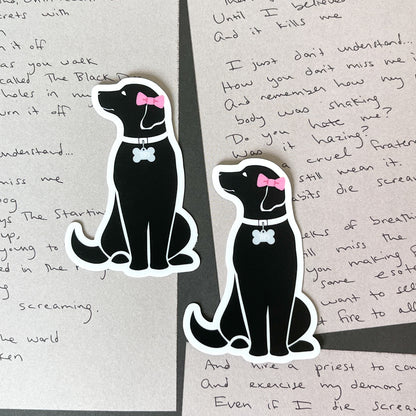 crets with
n
it off
as you walk
called The Black D
holes in my
urn it off
understand...
miss me
og
ys The Startin
up,
young to
ed in the
screaming.
the world
ken
Until I believed
And it kills me
I just don't understand...
How you don't miss me i
And remember how my
body was shaking
Do you hate me?
was it hazing?
a cruel fratern
still mean it.
bits die scream
eks of breath
ill miss the
you making
some esot
want to sell
t fire to all
And hire a priest to com
And exercise my demons
Even if I die screa